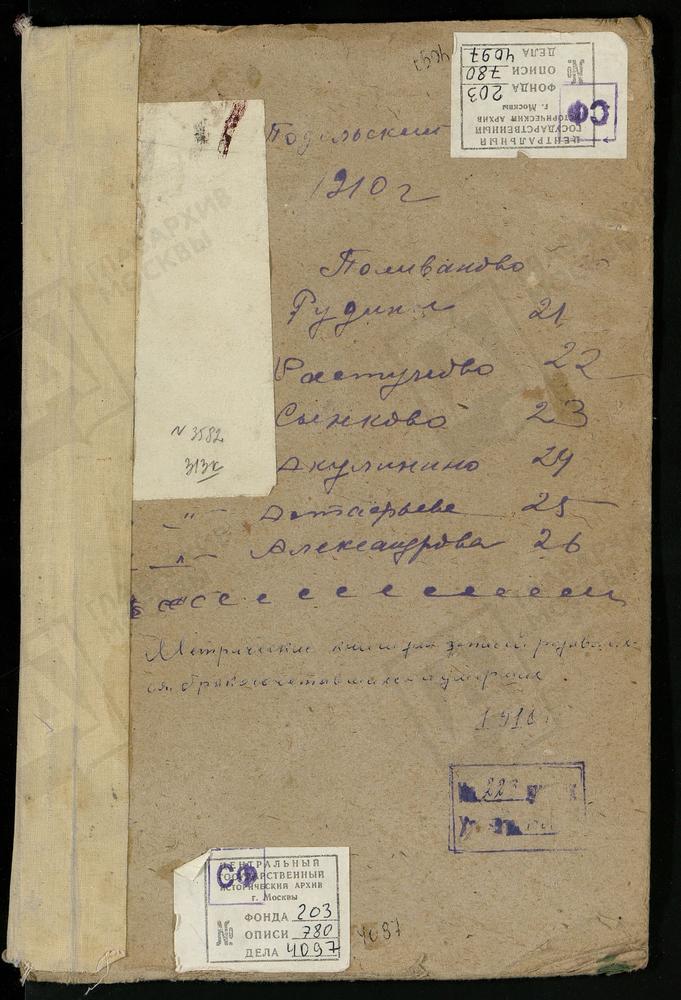 4097
ЦЕНТРАЛЬНЫЙ
ГОСУДАРСТВЕННЫЙ
ИСТОРИЧЕСКИЙ АРХИВ
г. Москвы
ФОНДА 203
ОПИСИ 780
ДЕЛА 4097
СФ
Подольский
1910 г
Поливаново
Рудин 21
Растуново 22
Сынково 23
Акулинино 24
" Астафьеве 25
" Александрова 26
N 3582
313к
Метрические книги для записей родивших-
ся, бракосочетавшихся и умерших.
1910
№ 223
СФ
ЦЕНТРАЛЬНЫЙ
ГОСУДАРСТВЕННЫЙ
ИСТОРИЧЕСКИЙ АРХИВ
г. Москвы
ФОНДА 203
ОПИСИ 780
ДЕЛА 4097
4097
ГЛАВАРХИВ
МОСКВЫ